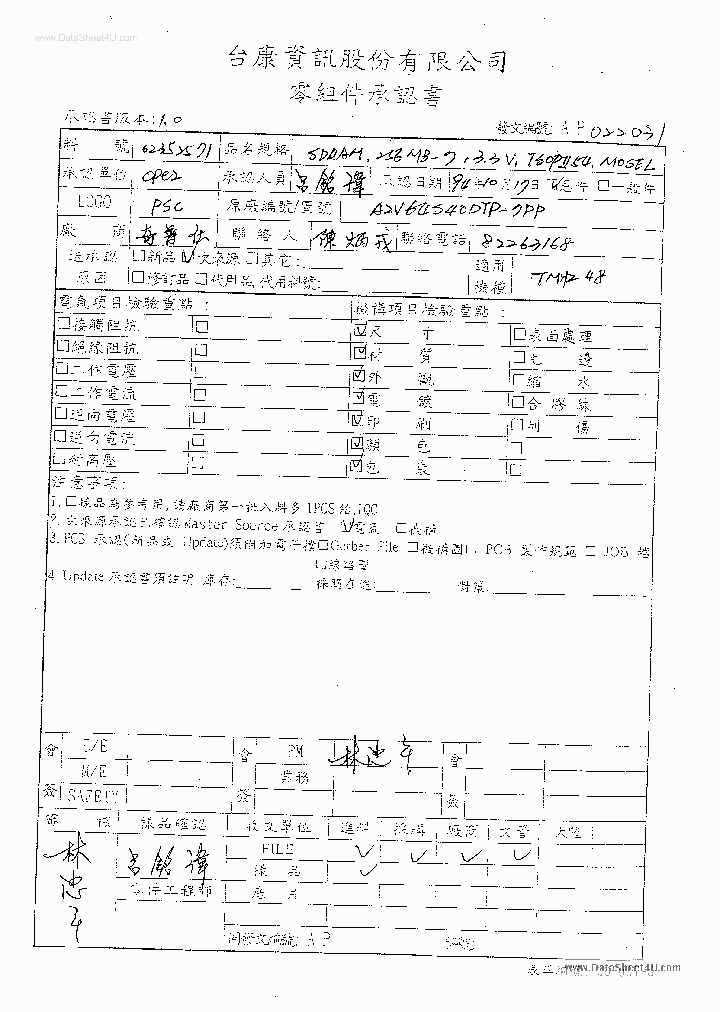 www.DataSheet4U.com
台康資訊股份有限公司
零組件承認書
承認書版本:1.0
發文編號 AP022031
料 號 62352571 品名規格 SDRAM, 256MB-7, 3.3V, TSOPII54, MOSEL
承認單位 CPE2 承認人員 呂銘諱 承認日期 94年10月17日 一般件
LOGO PSC 原廠編號/貨號 A2V64S40DTP-7PP
廠 商 聯絡人 陳炳 聯絡電話 82263168
送承認 □新品 ☑次來源 □其它:
原因 □修訂品 □代用品,代用料號:
適用機種 TMP2 48
電氣項目檢驗重點 : 機構項目檢驗重點 :
□接觸阻抗 □ ☑尺 寸 □表面處理
□絕緣阻抗 □ ☑材 質 □毛 邊
□工作電壓 □ ☑外 觀 □縮 水
□工作電流 □ ☑電 鍍 □合膠線
□逆向電壓 □ ☑印 刷 □刮 傷
□逆向電流 □ ☑顏 色 □
□耐高壓 □ ☑包 裝 □
注意事項:
1.□樣品為參考用,請廠商第一批入料多1PCS給IQC
2.次來源承認已確認Master Source承認書 ☑電氣 □機構
3.PCB 承認(新品或 Update)須附加電子檔□Gerber File □機構圖□ PCB 製作規範 □ JOB 檔
□線路圖
4.Update承認書須註明 庫存:
會簽 E/E 會簽 PM 林忠 會簽
M/E 業務
SAFETY
審 核 樣品確認 收文單位 進料 採購 廠商 文管 大陸
林忠 呂銘諱 FILE ✓ ✓ ✓ ✓
零件工程師 樣品 ✓
底片
AP
www.DataSheet4U.com